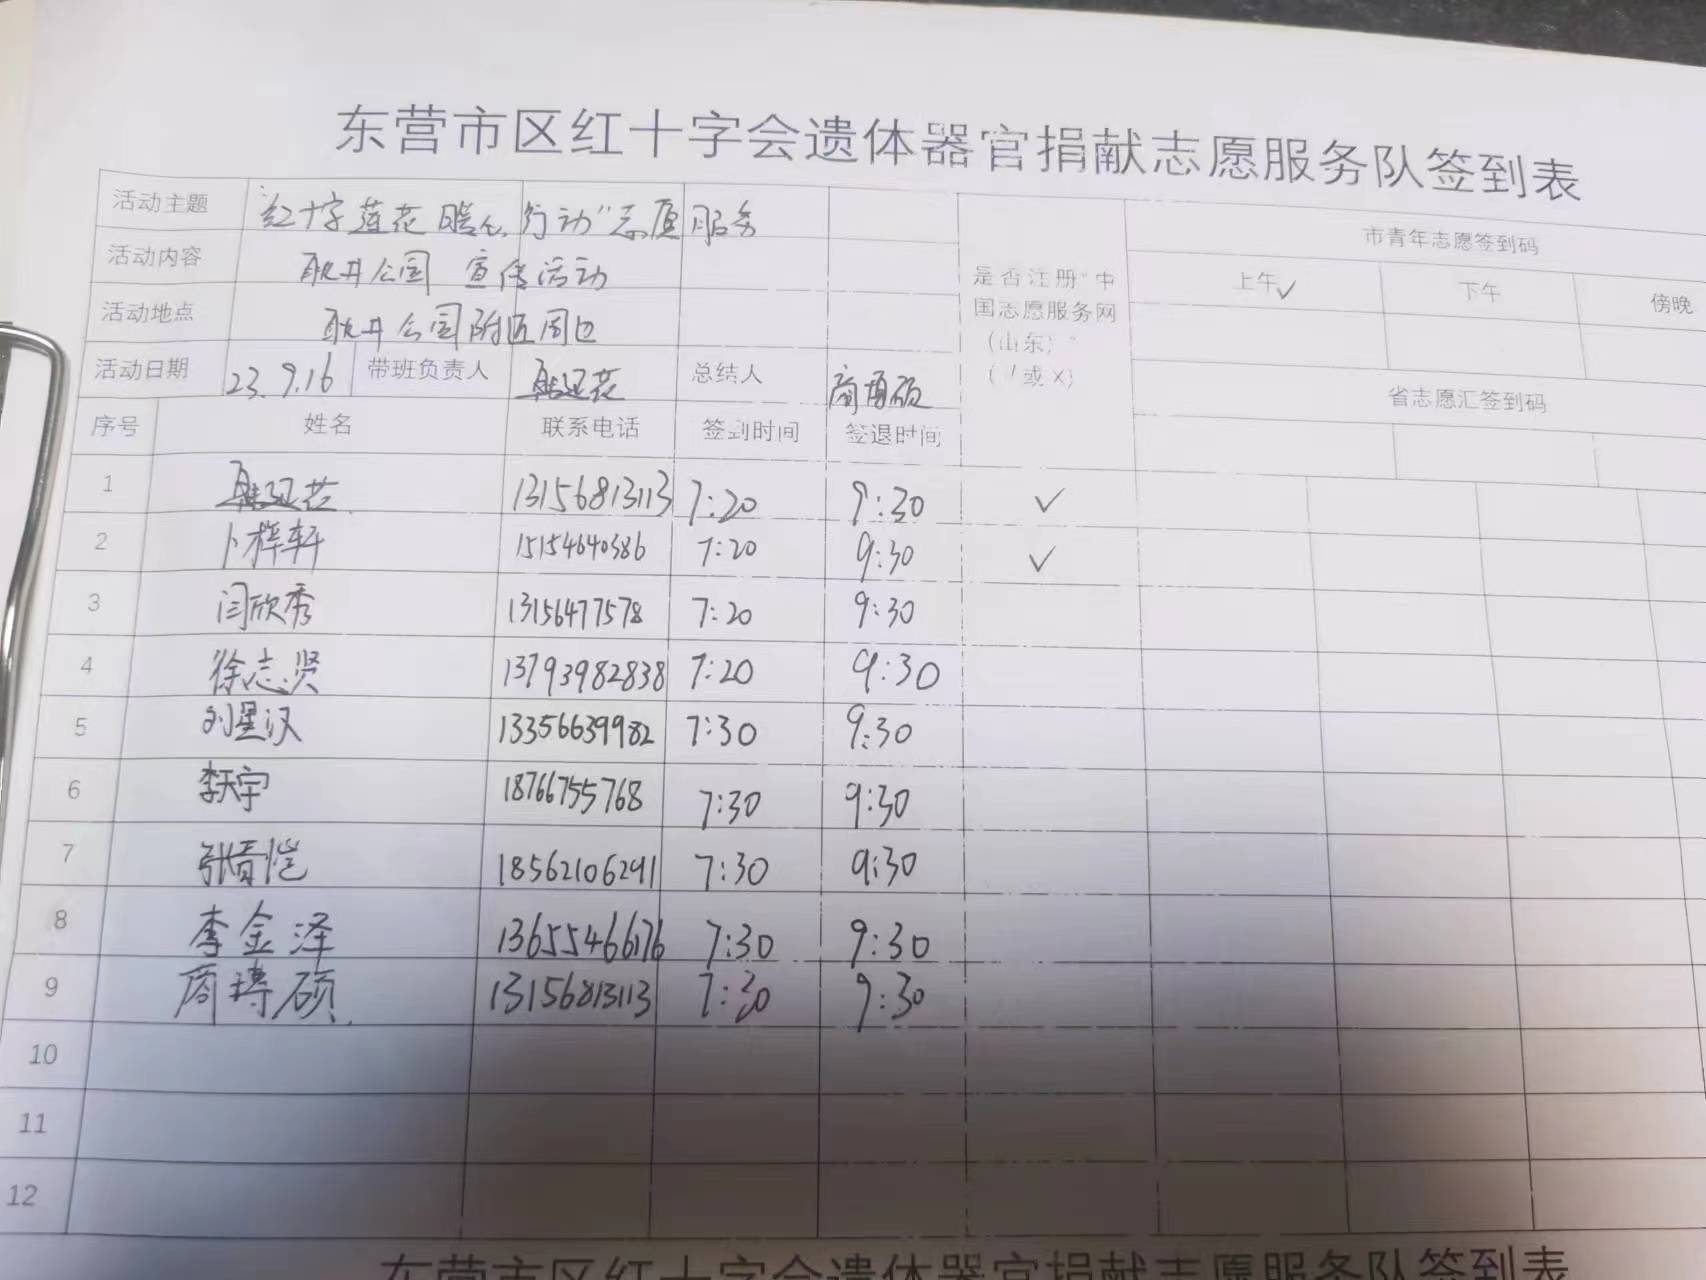 东营市区红十字会遗体器官捐献志愿服务队签到表
活动主题 "红十字莲花暖心行动"志愿服务
市青年志愿签到码
活动内容 耿井公园 宣传活动
是否注册"中国志愿服务网（山东）"（√或×）
上午✓ 下午 傍晚
活动地点 耿井公园附近周边
活动日期 23.9.16 带班负责人 总结人 商博硕
省志愿汇签到码
序号 姓名 联系电话 签到时间 签退时间
1 13156813113 7:20 9:30 ✓
2 卜梓轩 15154640386 7:20 9:30 ✓
3 闫欣秀 13156477578 7:20 9:30
4 徐志贤 13793982838 7:20 9:30
5 刘星汉 13356639982 7:30 9:30
6 李天宇 18766755768 7:30 9:30
7 张晋恺 18562106291 7:30 9:30
8 李金泽 13655466176 7:30 9:30
9 商博硕 13156813113 7:30 9:30
10
11
12
东营市区红十字会遗体器官捐献志愿服务队签到表